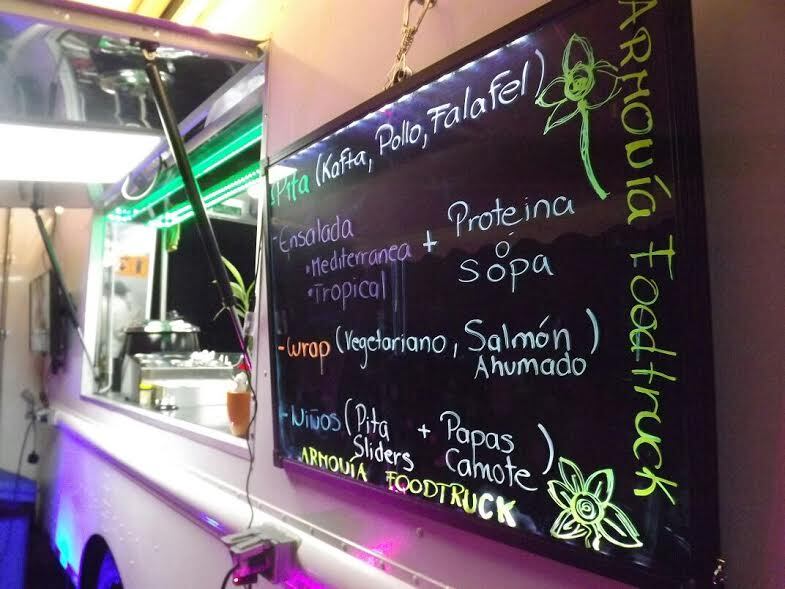 -Pita (Kafta, Pollo, Falafel)
-Ensalada + Proteina
•Mediterranea ó
•Tropical Sopa
-Wrap (Vegetariano, Salmón
Ahumado)
-Niños (Pita + Papas
Sliders Camote)
ARMONÍA FOODTRUCK
ARMONÍA Foodtruck